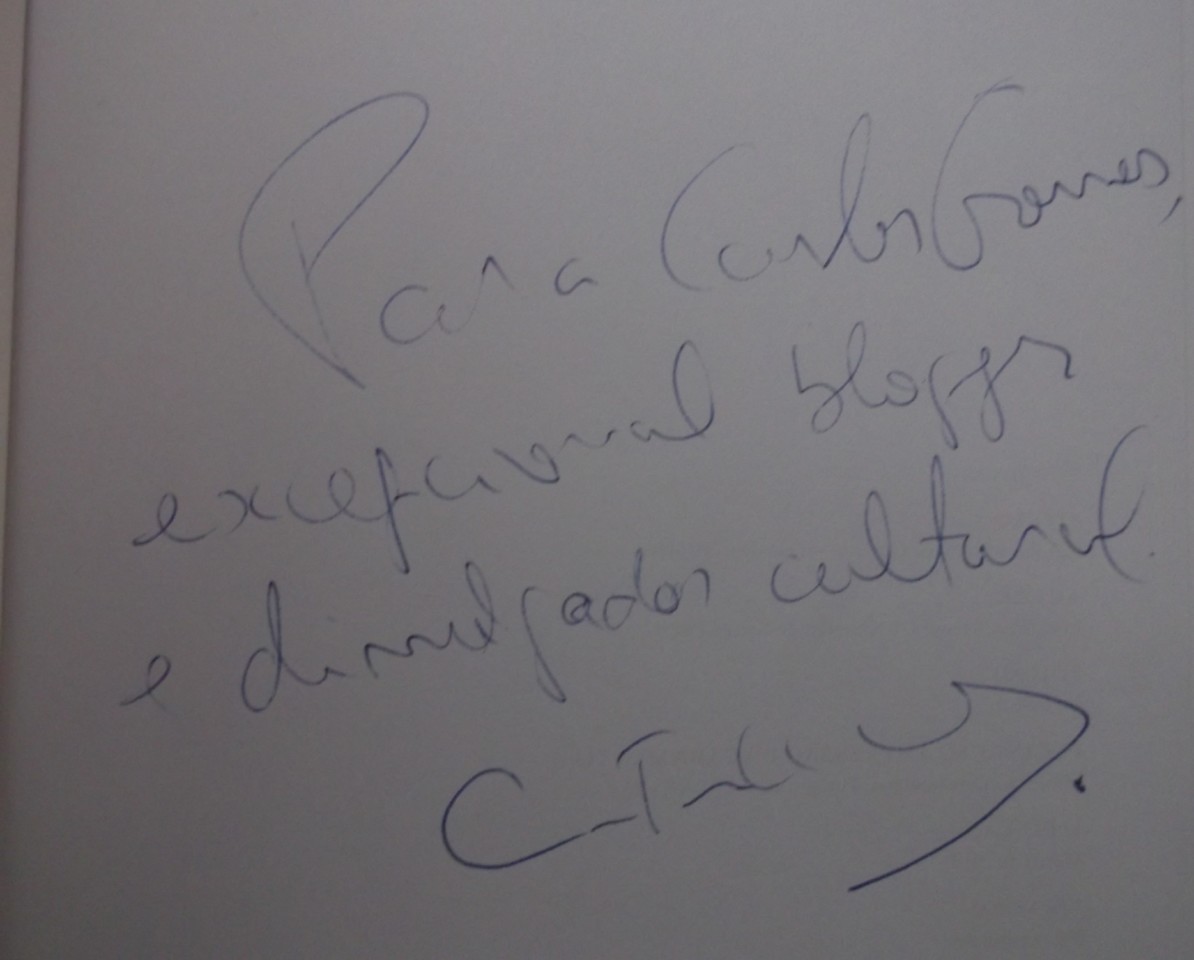 Para Carlos Gomes,
excepcional blogger
e divulgador cultural.